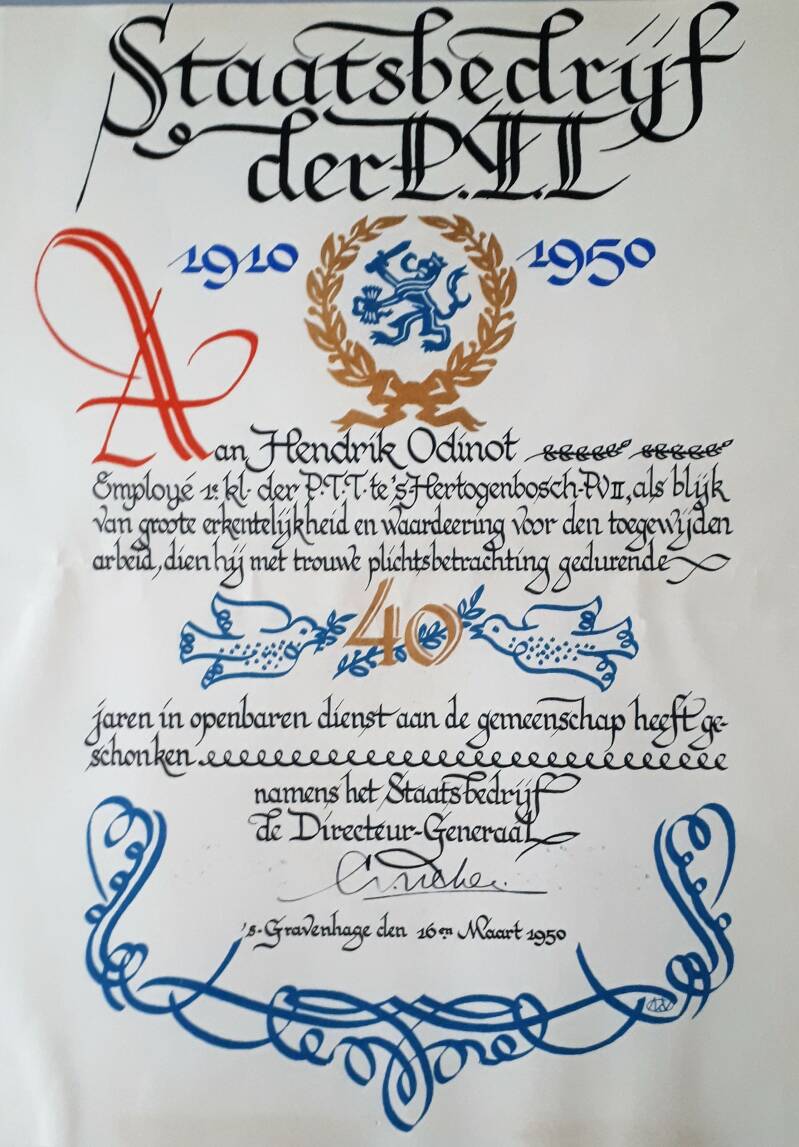 Staatsbedrijf
der P.T.T.
1910 1950
Aan Hendrik Odinot
Employé 1e. kl. der P.T.T. te 's Hertogenbosch-PVII, als blijk
van groote erkentelijkheid en waardeering voor den toegewijden
arbeid, dien hij met trouwe plichtsbetrachting gedurende
40
jaren in openbaren dienst aan de gemeenschap heeft ge-
schonken.
namens het Staatsbedrijf
de Directeur-Generaal
's-Gravenhage den 16en Maart 1950